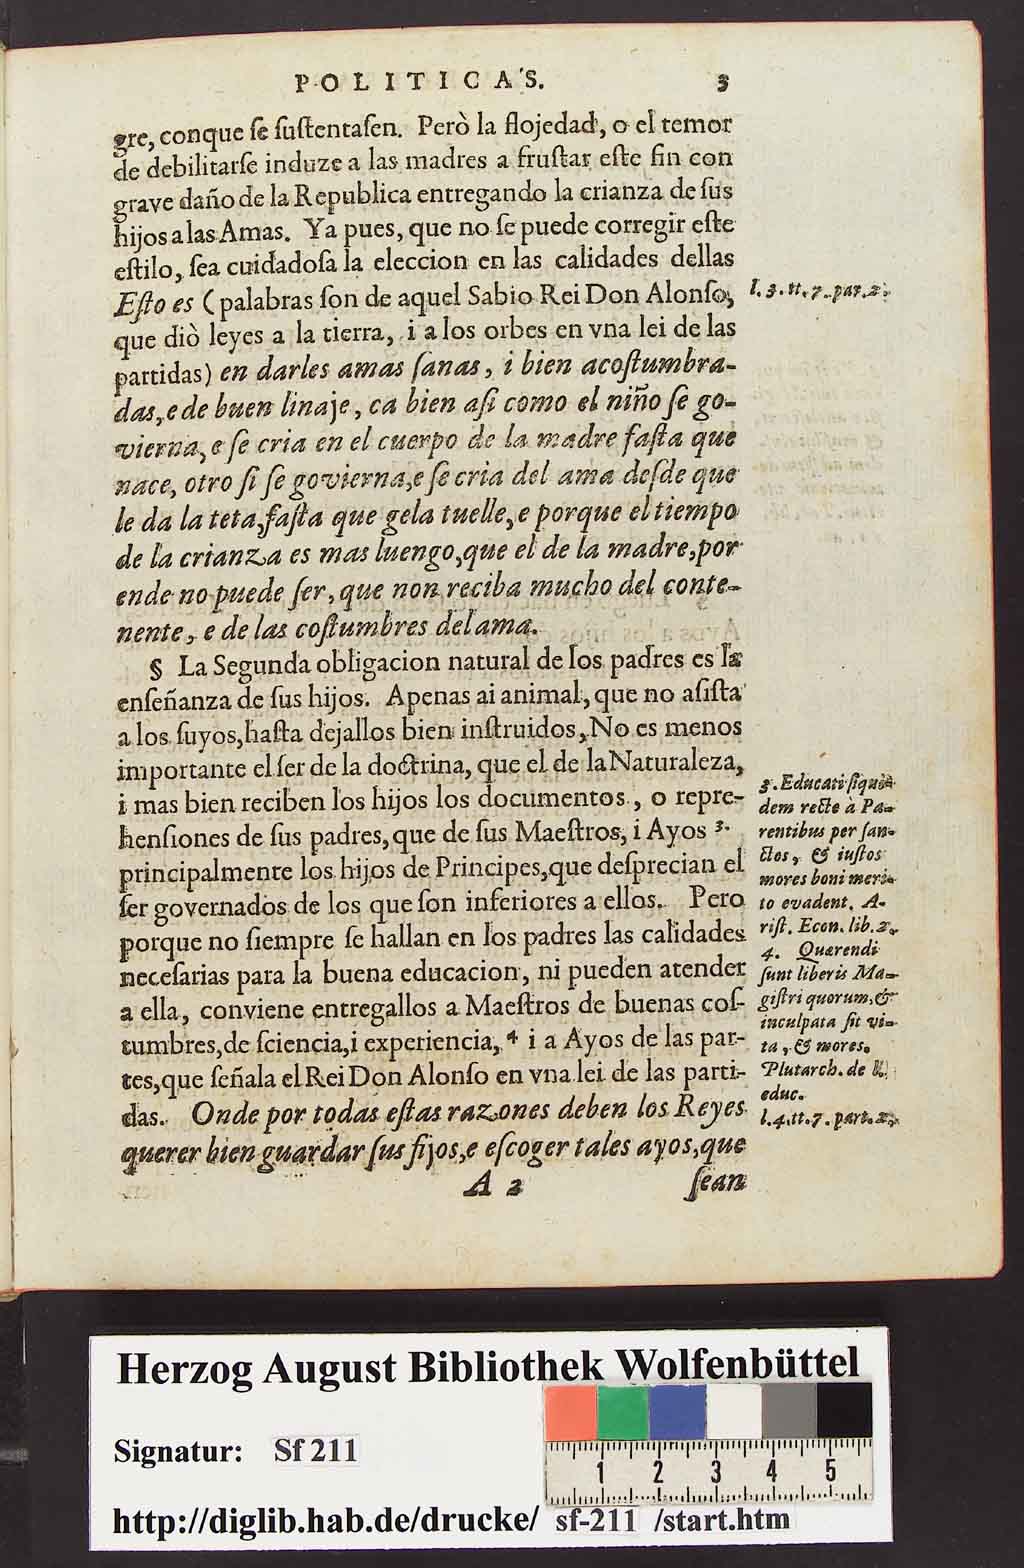 POLITICAS. 3
gre, conque ſe ſuſtentaſen. Però la flojedad, o el temor
de debilitarſe induze a las madres a fruſtar eſte fin con
grave daño de la Republica entregando la crianza de ſus
hijos a las Amas. Ya pues, que no ſe puede corregir eſte
eſtilo, ſea cuidadoſa la eleccion en las calidades dellas
Eſto es (palabras ſon de aquel Sabio Rei Don Alonſo,
que diò leyes a la tierra, i a los orbes en vna lei de las
partidas) en darles amas ſanas, i bien acoſtumbra-
das, e de buen linaje, ca bien aſi como el niño ſe go-
vierna, e ſe cria en el cuerpo de la madre faſta que
nace, otro ſi ſe govierna, e ſe cria del ama deſde que
le da la teta, faſta que gela tuelle, e porque el tiempo
de la crianza es mas luengo, que el de la madre, por
ende no puede ſer, que non reciba mucho del conte-
nente, e de las coſtumbres del ama.
§ La Segunda obligacion natural de los padres es la
enſeñanza de ſus hijos. Apenas ai animal, que no aſiſta
a los ſuyos, haſta dejallos bien inſtruidos, No es menos
importante el ſer de la doctrina, que el de la Naturaleza,
i mas bien reciben los hijos los documentos, o repre-
henſiones de ſus padres, que de ſus Maeſtros, i Ayos 3.
principalmente los hijos de Principes, que deſprecian el
ſer governados de los que ſon inferiores a ellos. Pero
porque no ſiempre ſe hallan en los padres las calidades
neceſarias para la buena educacion, ni pueden atender
a ella, conviene entregallos a Maeſtros de buenas coſ-
tumbres, de ſciencia, i experiencia, 4 i a Ayos de las par-
tes, que ſeñala el Rei Don Alonſo en vna lei de las parti-
das. Onde por todas eſtas razones deben los Reyes
querer bien guardar ſus fijos, e eſcoger tales ayos, que
A 2 ſean
l. 3. tt. 7. par. 2.
3. Educati ſiqui-
dem recte à Pa-
rentibus per ſan-
ctos, & iuſtos
mores boni meri-
to evadent. A-
riſt. Econ. lib. 2.
4. Quærendi
ſunt liberis Ma-
giſtri quorum, &
inculpata ſit vi-
ta, & mores.
Plutarch. de li.
educ.
l. 4. tt. 7. part. 2.
Herzog August Bibliothek Wolfenbüttel
Signatur: Sf 211
1 2 3 4 5
http://diglib.hab.de/drucke/ sf-211 /start.htm